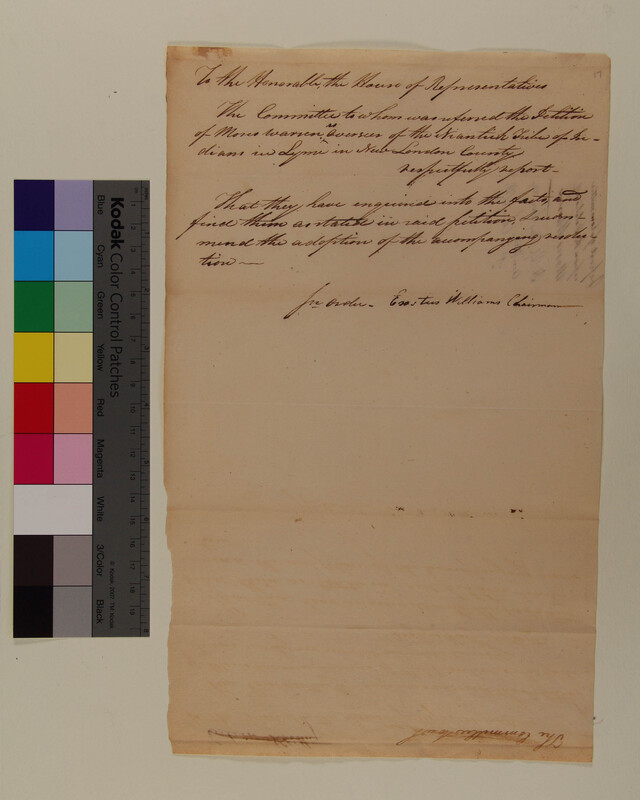 To the Honorable, the House of Representatives
The Committee to whom was referred the Petition
of Moses Warren, as Overseer of the Niantick Tribe of In-
dians in Lyme in New London County
respectfully report-
That they have enquired into the facts, and
find them as stated in said petition, & recom-
mend the adoption of the accompanying resolu-
tion —
pr order. Erastus Williams Chairman
Kodak Color Control Patches
Blue
Cyan
Green
Yellow
Red
Magenta
White
3/Color
Black
© Kodak, 2007 TM: Kodak